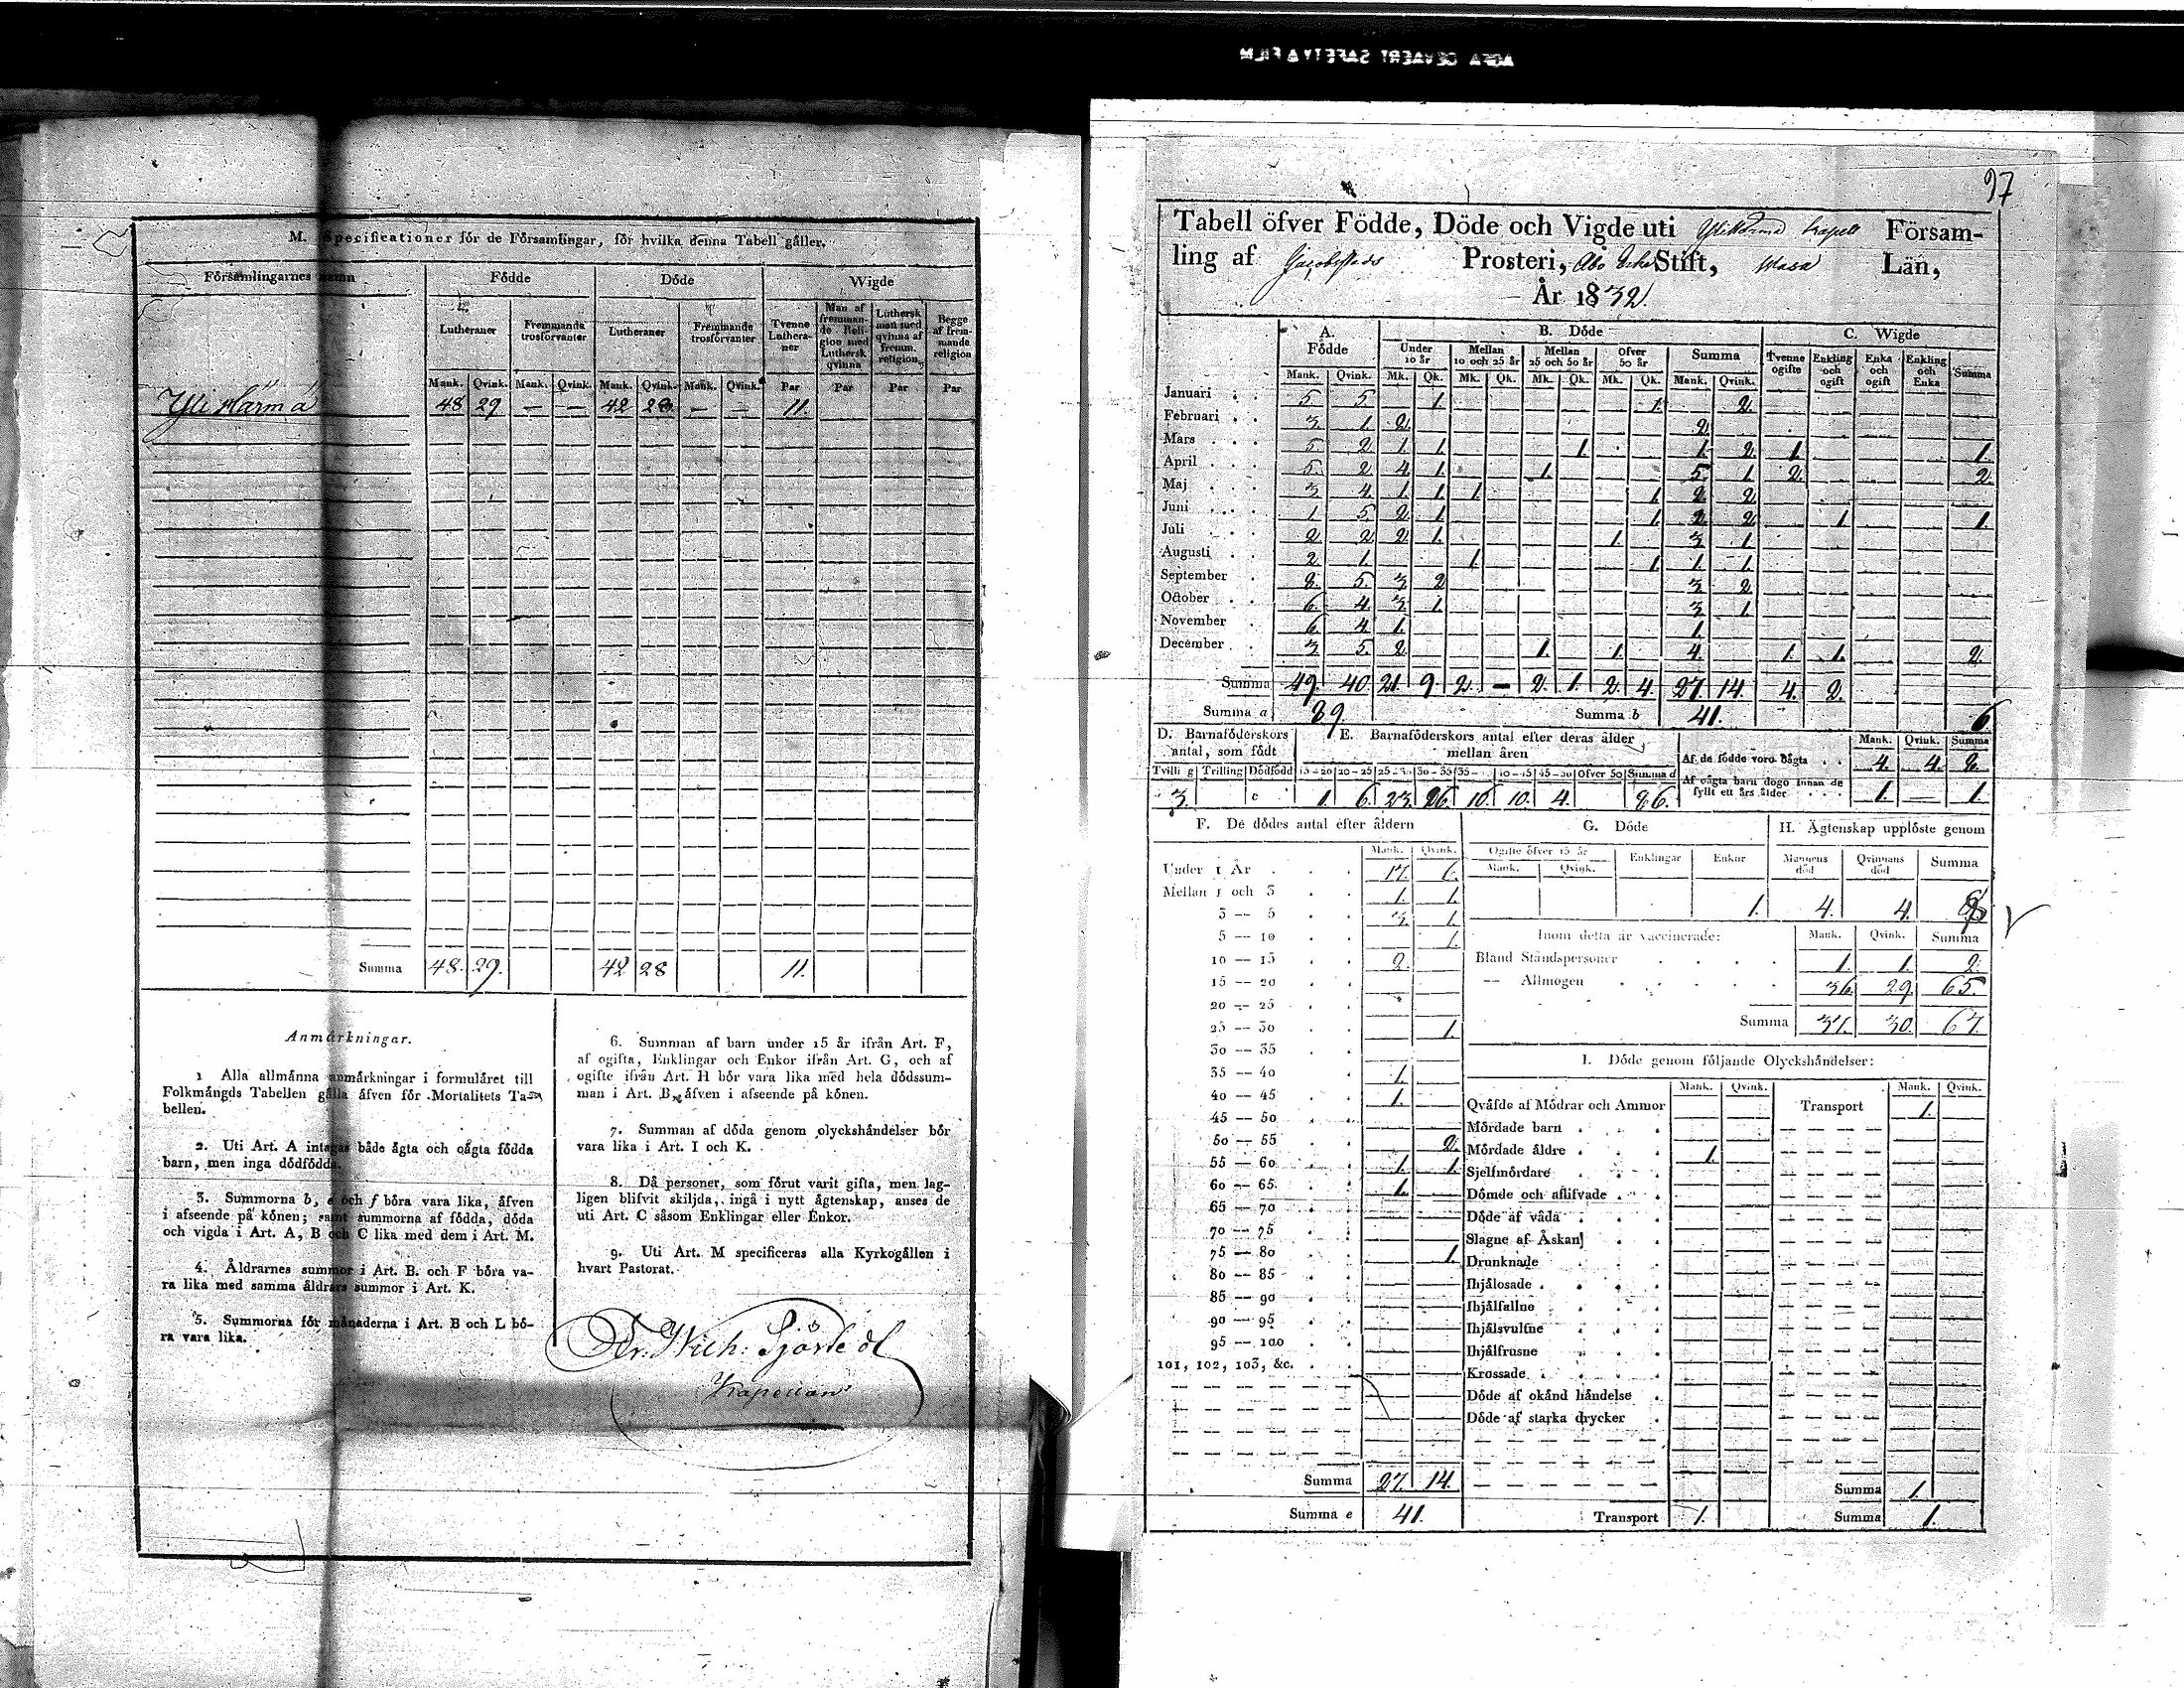 AGFA GEVAERT SAFETY FILM
M. Specificationer för de Församlingar, för hvilka denna Tabell gäller.
Församlingarnes namn Födde Döde Wigde
Lutheraner Fremmande trosförvanter Lutheraner Fremmande trosförvanter Tvenne Lutheraner Man af fremmande Religion med Luthersk qvinna Luthersk man med qvinna af fremm. religion Begge af fremmande religion
Mank. Qvink. Mank. Qvink. Mank. Qvink. Mank. Qvink. Par Par Par Par
Yli Härmä 48 29 — — 42 28 — — 11.
Summa 48. 29. 42 28 11.
Anmärkningar.
1 Alla allmänna anmärkningar i formuläret till
Folkmängds Tabellen gälla äfven för Mortalitets Ta-
bellen.
2. Uti Art. A intagas både ägta och oägta födda
barn, men inga dödfödda.
3. Summorna b, e och f böra vara lika, äfven
i afseende på könen; samt summorna af födda, döda
och vigda i Art. A, B och C lika med dem i Art. M.
4. Åldrarnes summor i Art. B. och F böra va-
ra lika med samma åldrars summor i Art. K.
5. Summorna för månaderna i Art. B och L bö-
ra vara lika.
6. Summan af barn under 15 år ifrån Art. F,
af ogifta, Enklingar och Enkor ifrån Art. G, och af
ogifte ifrån Art. H bör vara lika med hela dödssum-
man i Art. B, äfven i afseende på könen.
7. Summan af döda genom olyckshändelser bör
vara lika i Art. I och K.
8. Då personer, som förut varit gifta, men lag-
ligen blifvit skiljda, ingå i nytt ägtenskap, anses de
uti Art. C såsom Enklingar eller Enkor.
9. Uti Art. M specificeras alla Kyrkogällen i
hvart Pastorat.
Wilh:
Kapellan
97
Tabell öfver Födde, Döde och Vigde uti Ylihärmä Kapell Försam-
ling af Jacobstads Prosteri, Åbo Erke Stift, Wasa Län,
År 1832.
A. Födde B. Döde C. Wigde
Under 10 år Mellan 10 och 25 år Mellan 25 och 50 år Öfver 50 år Summa Tvenne ogifte Enkling och ogift Enka och ogift Enkling och Enka Summa
Mank. Qvink. Mk. Qk. Mk. Qk. Mk. Qk. Mk. Qk. Mank. Qvink.
Januari 5. 5. 1. 1. 2.
Februari 3 1. 2. 2.
Mars 5. 2. 1. 1. 1. 1. 2. 1. 1.
April 5. 2. 4. 1. 1. 5. 1. 2. 2.
Maj 3 4. 1. 1. 1. 1. 2. 2.
Juni 1 5. 2. 1. 1. 2. 2. 1. 1.
Juli 2. 2. 2. 1. 1. 3. 1.
Augusti 2. 1. 1. 1. 1. 1.
September 8. 5. 3. 2. 3. 2.
October 6. 4. 3. 1. 3. 1.
November 6. 4. 1. 1.
December 3. 5. 2. 1. 1. 4. 1. 1. 2.
Summa 49. 40. 21. 9. 2. — 2. 1. 2. 4. 27. 14. 4. 2.
Summa a 89. Summa b 41. 6
D. Barnaföderskors antal, som födt
Tvilling Trilling Dödfödd
3. c
E. Barnaföderskors antal efter deras ålder mellan åren
15—20 20—25 25—30 30—35 35— 40—45 45—50 öfver 50 Summa d
1. 6. 23. 26. 10. 10. 4. 86.
Mank. Qvink. Summa
Af de födde voro oägta 4. 4. 8.
Af oägta barn dogo innan de fyllt ett års ålder 1. — 1.
F. De dödes antal efter åldern
Mank. Qvink.
Under 1 År 17. 6.
Mellan 1 och 3 1. 1.
3 — 5 3. 1.
5 — 10 1.
10 — 15 2.
15 — 20
20 — 25
25 — 30 1.
30 — 35
35 — 40 1.
40 — 45 1.
45 — 50
50 — 55 2.
55 — 60 1. 1.
60 — 65 1.
65 — 70
70 — 75
75 — 80 1.
80 — 85
85 — 90
90 — 95
95 — 100
101, 102, 103, &c.
Summa 27. 14.
Summa e 41.
G. Döde
Ogifte öfver 15 år Enklingar Enkor
Mank. Qvink.
1.
H. Ägtenskap upplöste genom
Mannens död Qvinnans död Summa
4. 4. 8
Inom detta år vaccinerade: Mank. Qvink. Summa
Bland Ståndspersoner 1. 1. 2.
— Allmogen 36. 29. 65.
Summa 37. 30. 67.
I. Döde genom följande Olyckshändelser:
Mank. Qvink. Mank. Qvink.
Qväfde af Mödrar och Ammor Transport 1.
Mördade barn
Mördade äldre 1.
Sjelfmördare
Dömde och aflifvade
Döde af våda
Slagne af Åskan
Drunknade
Ihjälosade
Ihjälfallne
Ihjälsvultne
Ihjälfrusne
Krossade
Döde af okänd händelse
Döde af starka drycker
Summa 1.
Transport 1. Summa 1.